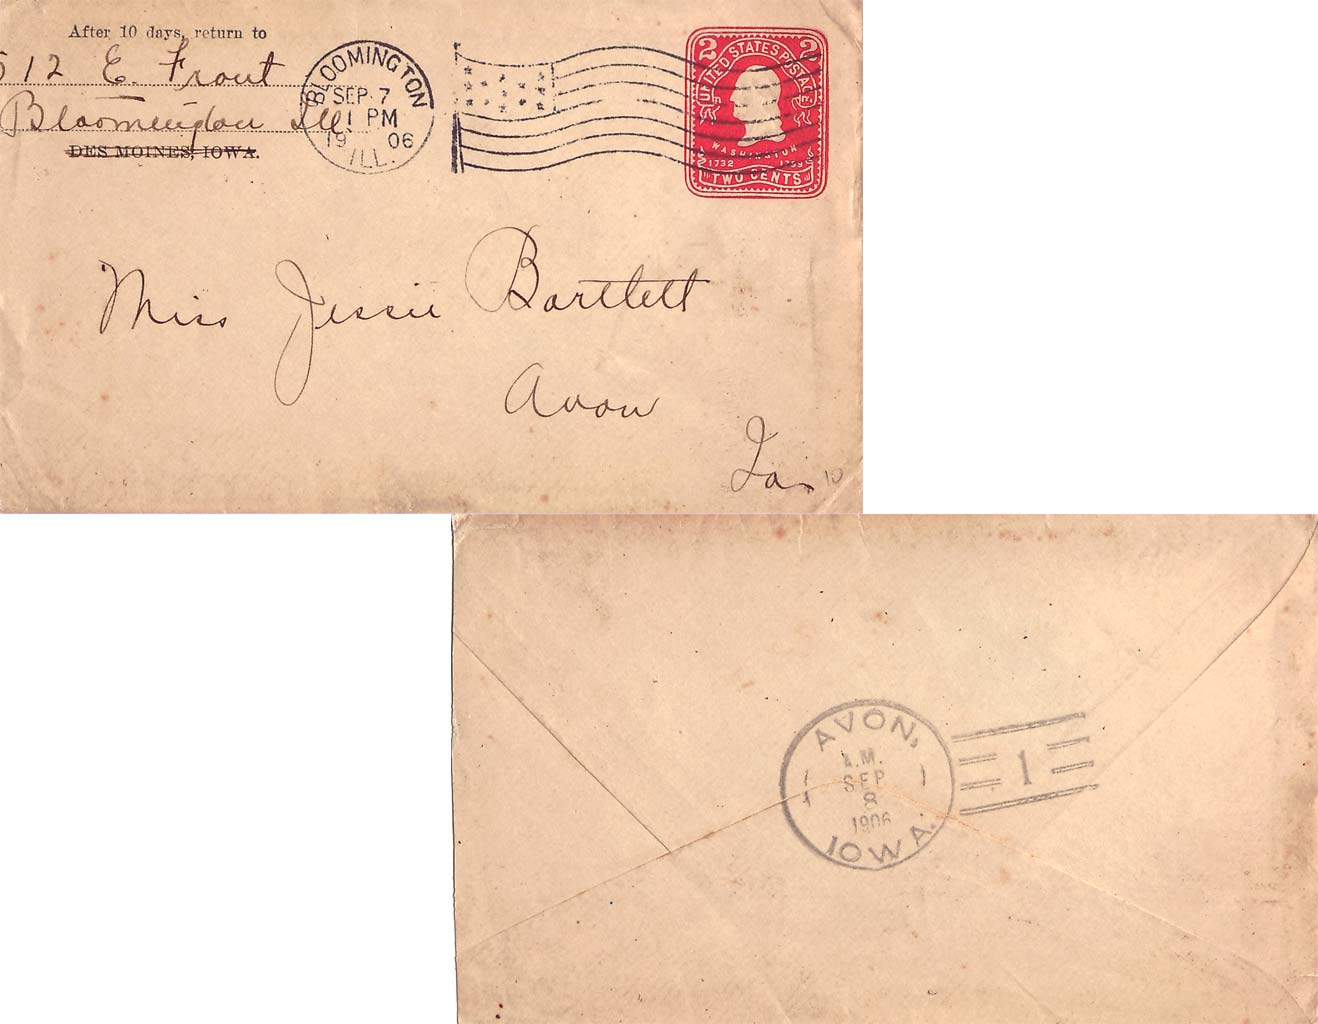 After 10 days, return to
512 E. Front
Bloomington Ill
DES MOINES, IOWA.
BLOOMINGTON
SEP 7
1 PM
19 06
ILL.
2 2
UNITED STATES POSTAGE
WASHINGTON
1732 1799
TWO CENTS
Miss Jessie Bartlett
Avon
Ia.
10
AVON,
A.M.
SEP
8
1906
IOWA.
1